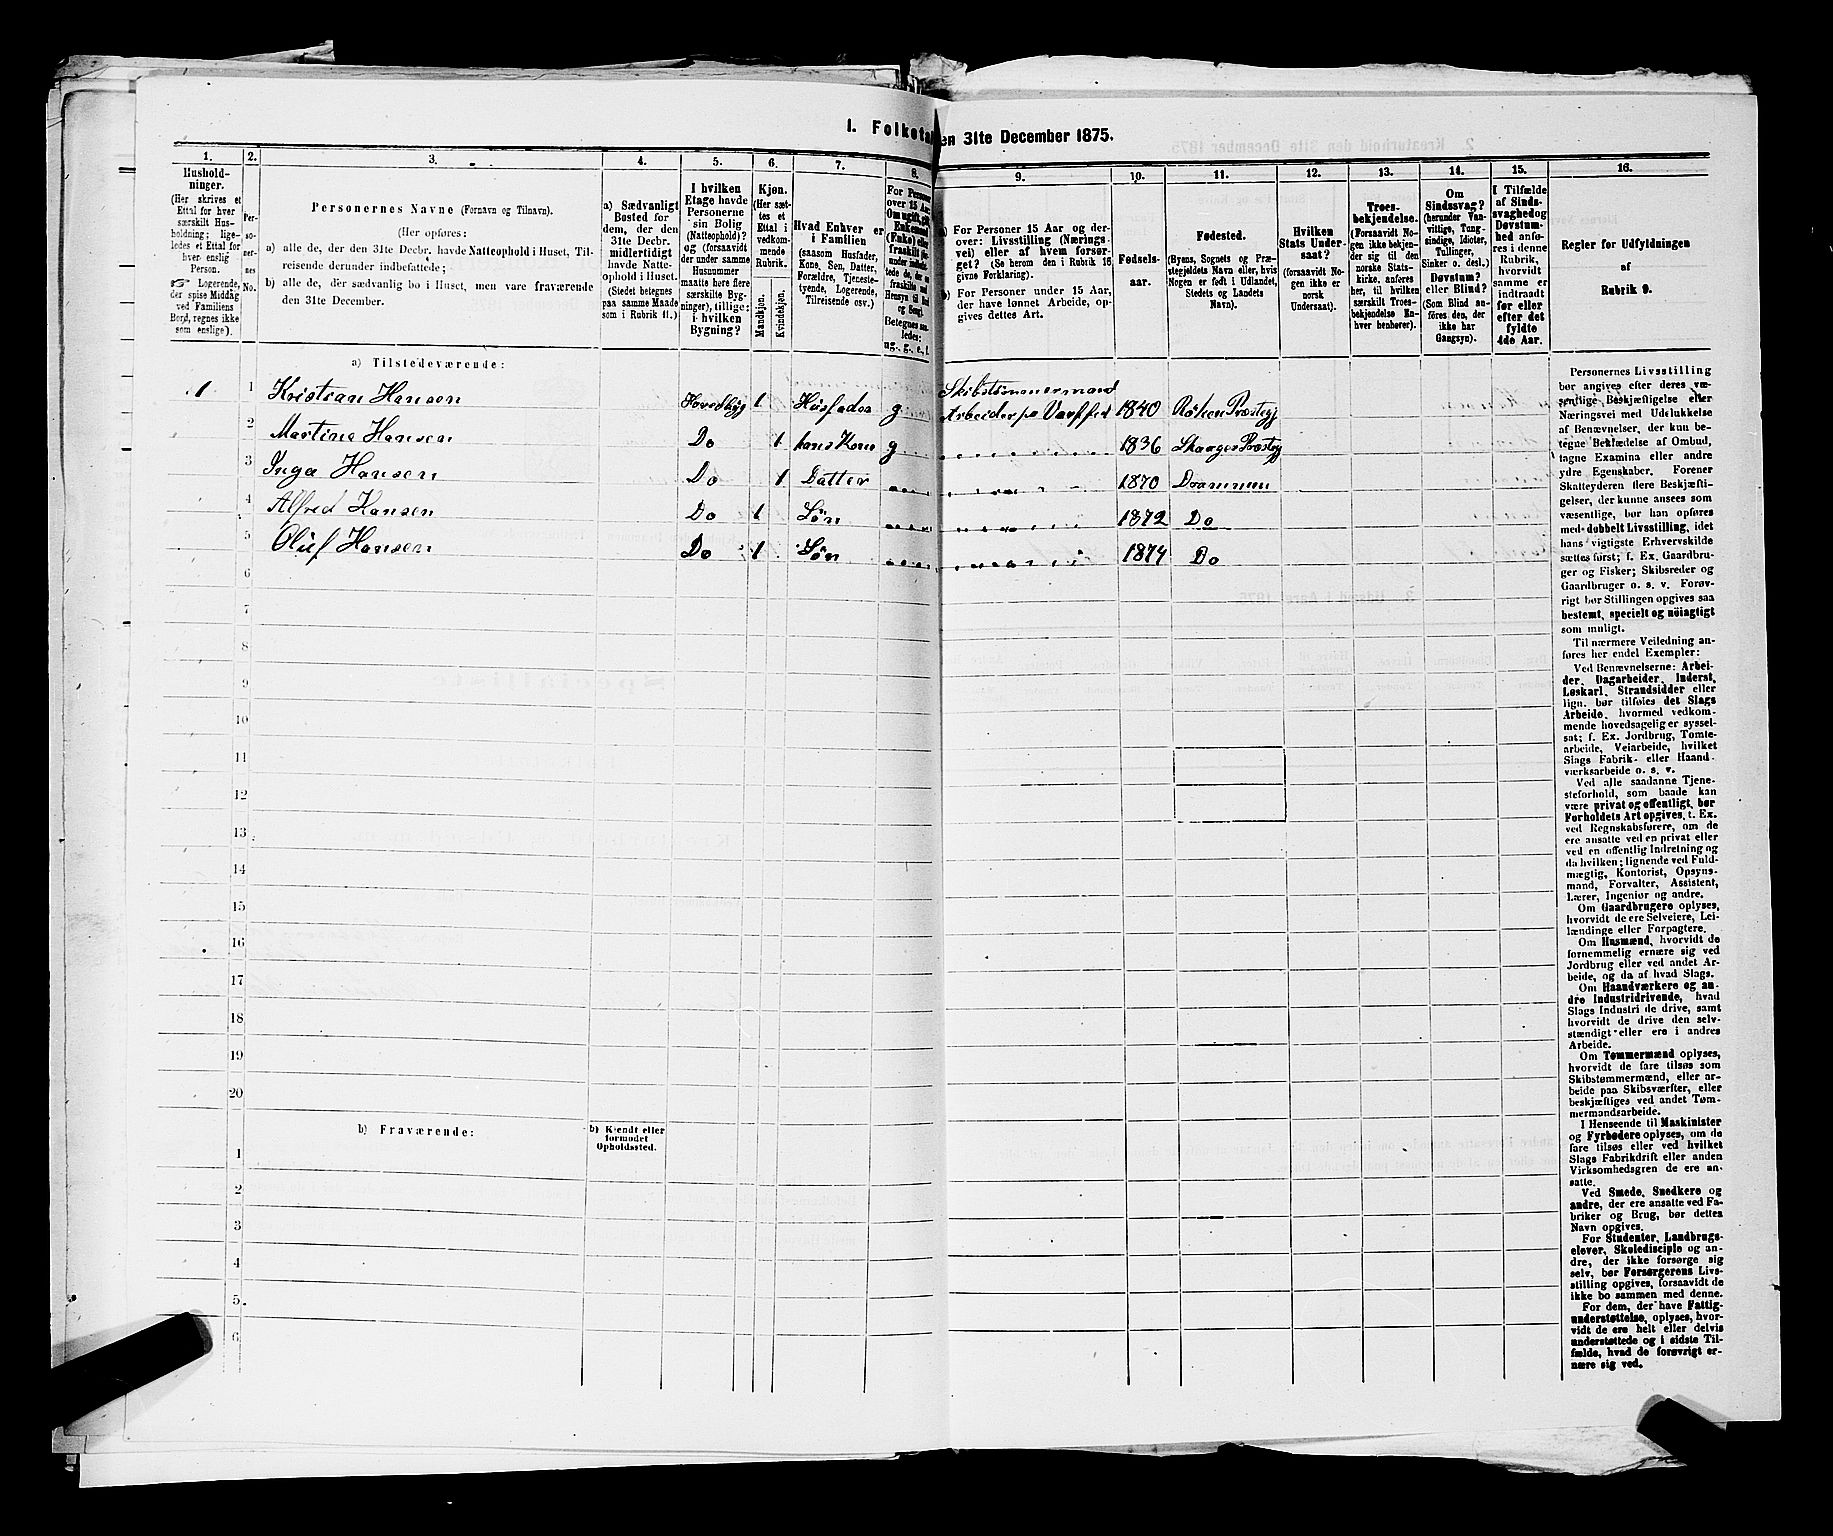 1. Folketæ
en 31te December 1875.
1. 2. 3. 4. 5. 6. 7. 8. 9. 10. 11. 12. 13. 14. 15. 16.
Hushold-
ninger.
(Her skrives et
Ettal for hver
særskilt Hus-
holdning; lige-
ledes et Ettal for
hver enslig
Person.
☞ Logerende,
der spise Middag
ved Familiens
Bord, regnes ikke
som enslige).
Per-
so-
ner-
nes
No.
Personernes Navne (Fornavn og Tilnavn).
(Her opføres:
a) alle de, der den 31te Decbr. havde Natteophold i Huset, Til-
reisende derunder indbefattede;
b) alle de, der sædvanlig bo i Huset, men vare fraværende
den 31te December.
a) Sædvanligt
Bosted for
dem, der den
31te Decbr.
midlertidigt
havde Natte-
ophold i Huset.
(Stedet betegnes
paa samme Maade
som i Rubrik 11.)
I hvilken
Etage havde
Personerne
sin Bolig
(Natteophold)?
og (forsaavidt
der under samme
Husnummer
maatte høre flere
særskilte Byg-
ninger), tillige:
i hvilken
Bygning?
Kjøn.
(Her sæt-
tes et
Ettal i
vedkom-
mende
Rubrik.
Mandkjøn.
Kvindekjøn.
Hvad Enhver er
i Familien
(saasom Husfader,
Kone, Søn, Datter,
Forældre, Tjeneste-
tyende, Logerende,
Tilreisende osv.)
For Person
over 15 Aar:
Om ugift, gift,
Enkemand
(Enke) eller
fraskilt
Betegnes saa-
ledes:
ug., g., e., f.
a) For Personer 15 Aar og der-
over: Livsstilling (Nærings-
vei) eller af hvem forsør-
get? (Se herom den i Rubrik 16
givne Forklaring).
b) For Personer under 15 Aar,
der have lønnet Arbeide, op-
gives dettes Art.
Fødsels-
aar.
Fødested.
(Byens, Sognets og Præ-
stegjeldets Navn eller, hvis
Nogen er født i Udlandet,
Stedets og Landets
Navn).
Hvilken
Stats Under-
saat?
(forsaavidt No-
gen ikke er
norsk
Undersaat).
Troes-
bekjendelse.
(Forsaavidt No-
gen ikke bekjen-
der sig til den
norske Stats-
kirke, anføres
her, til hvilken
særskilt Troes-
bekjendelse En-
hver henhører).
Om
Sindssvag?
(herunder Van-
vittige, Tung-
sindige, Idioter,
Tullinger,
Sinker o. desl.)
Døvstum?
eller Blind?
(Som Blind an-
føres den, der
ikke har
Gangsyn).
I Tilfælde
af Sinds-
svaghed og
Døvstum-
hed anfø-
res i denne
Rubrik,
hvorvidt
samme er
indtraadt
før eller
efter det
fyldte
4de Aar.
Regler for Udfyldningen
af
Rubrik 9.
a) Tilstedeværende:
1 1 Kristian Hansen Hovedbyg 1 Husfader g Skibstømmermand
Arbeider på Værftet 1840 Röken Præstegj
2 Martine Hansen Do 1 hans Kone g 1836 Skauger Præstegj
3 Inga Hansen Do 1 Datter 1870 Drammen
4 Alfred Hansen Do 1 Søn 1872 Do
5 Oluf Hansen Do 1 Søn 1874 Do
6
7
8
9
10
11
12
13
14
15
16
17
18
19
20
b) Fraværende:
b) Kjendt eller
formodet
Opholdssted.
1
2
3
4
5
6
Personernes Livsstilling
bør angives efter deres væ-
sentlige Beskjæftigelse eller
Næringsvei med Udelukkelse
af Benævnelser, der kun be-
tegne Beklædelse af Ombud,
tagne Examina eller andre
ydre Egenskaber. Forener
Skatteyderen flere Beskjæfti-
gelser, der kunne ansees som
væsentlige, bør han opføres
med dobbelt Livsstilling, idet
hans vigtigste Erhvervskilde
sættes først; f. Ex. Gaardbru-
ger og Fisker; Skibsreder og
Gaardbruger o. s. v. Forøv-
rigt bør Stillingen opgives saa
bestemt, specielt og nøiagtigt
som muligt.
Til nærmere Veiledning an-
føres her endel Exempler:
Ved Benævnelserne: Arbei-
der, Dagarbeider, Inderst,
Løskarl, Strandsidder eller
lign. bør tilføies det Slags
Arbeide, hvormed vedkom-
mende hovedsagelig er syssel-
sat; f. Ex. Jordbrug, Tomte-
arbeide, Veiarbeide, hvilket
Slags Fabrik- eller Haand-
værksarbeide o. s. v.
Ved alle saadanne Tjene-
steforhold, som baade kan
være privat og offentligt, bør
Forholdets Art opgives, t. Ex.
ved Regnskabsførere, om de
ere ansatte ved en privat eller
ved en offentlig Indretning og
da hvilken; lignende ved Fuld-
mægtig, Kontorist, Opsyns-
mand, Forvalter, Assistent,
Lærer, Ingeniør og andre.
Om Gaardbrugere oplyses,
hvorvidt de ere Selveiere, Lei-
lændinge eller Forpagtere.
Om Husmænd, hvorvidt de
fornemmelig ernære sig ved
Jordbrug eller ved andet Ar-
beide, og da af hvad Slags.
Om Haandværkere og an-
dre Industridrivende, hvad
Slags Industri de drive, samt
hvorvidt de drive den selv-
stændigt eller ere i andres
Arbeide.
Om Tømmermænd oplyses,
hvorvidt de fare tilsøs som
Skibstømmermænd, eller ar-
beide paa Skibsværfter, eller
beskjæftiges ved andet Tøm-
mermandsarbeide.
I Henseende til Maskinister
og Fyrbødere oplyses, om de
fare tilsøs eller ved hvilket
Slags Fabrikdrift eller anden
Virksomhedsgren de ere an-
satte.
Ved Smede, Snedkere og
andre, der ere ansatte ved Fa-
briker og Brug, bør dettes
Navn opgives.
For Studenter, Landbrugs-
elever, Skoledisciple og an-
dre, der ikke forsørge sig
selv, bør Forsørgerens Livs-
stilling opgives, forsaavidt de
ikke bo sammen med denne.
For dem, der have Fattig-
understøttelse, oplyses, hvor-
vidt de ere helt eller delvis
understøttede og i sidste Til-
fælde, hvad de forøvrigt er-
nære sig ved.